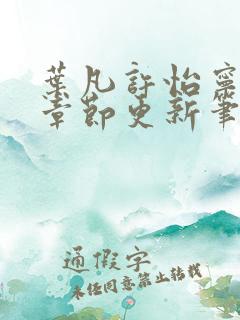 葉凡許怡寧
章節更新筆
通假字
未经同意禁止转载